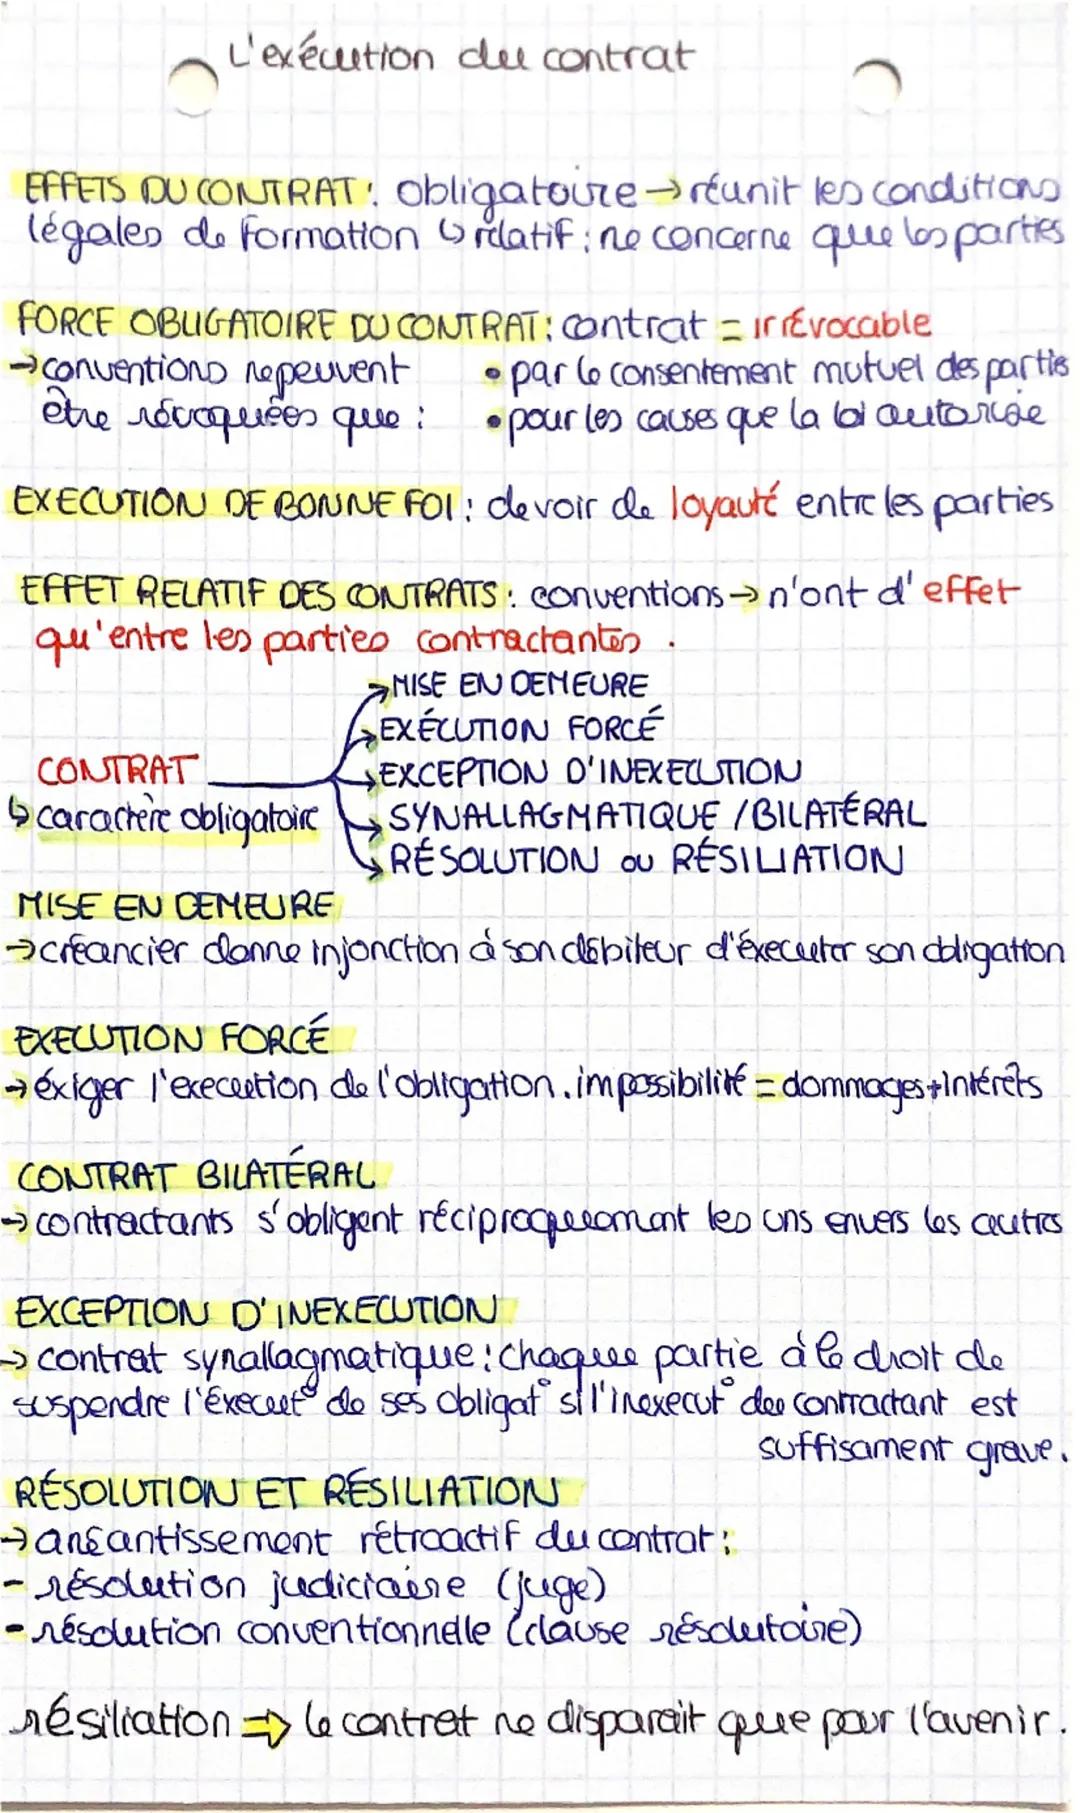 L'exécution du contrat
EFFETS DU CONTRAT : obligatoire → réunit les conditions
légales de formation ↳ relatif : ne concerne que les parties
FORCE OBLIGATOIRE DU CONTRAT : contrat = irrévocable
→ conventions ne peuvent • par le consentement mutuel des parties
être révoquées que : • pour les causes que la loi autorise
EXECUTION DE BONNE FOI : devoir de loyauté entre les parties
EFFET RELATIF DES CONTRATS : conventions → n'ont d'effet
qu'entre les parties contractantes .
→ MISE EN DEMEURE
→ EXÉCUTION FORCÉ
CONTRAT → EXCEPTION D'INEXECUTION
↳ caractère obligatoire → SYNALLAGMATIQUE / BILATÉRAL
→ RÉSOLUTION ou RÉSILIATION
MISE EN DEMEURE
→ créancier donne injonction à son débiteur d'éxecuter son obligation
EXECUTION FORCÉ
→ éxiger l'execution de l'obligation. impossibilité = dommages + intérêts
CONTRAT BILATÉRAL
→ contractants s'obligent réciproquement les uns envers les autres
EXCEPTION D'INEXECUTION
→ contrat synallagmatique : chaque partie à le droit de
suspendre l'éxecut° de ses obligat° si l'inexecut° du contractant est
suffisament grave.
RÉSOLUTION ET RÉSILIATION
→ anéantissement rétroactif du contrat :
- résolution judiciaire (juge)
- résolution conventionnelle (clause résolutoire)
résiliation ⇒ le contrat ne disparait que pour l'avenir.